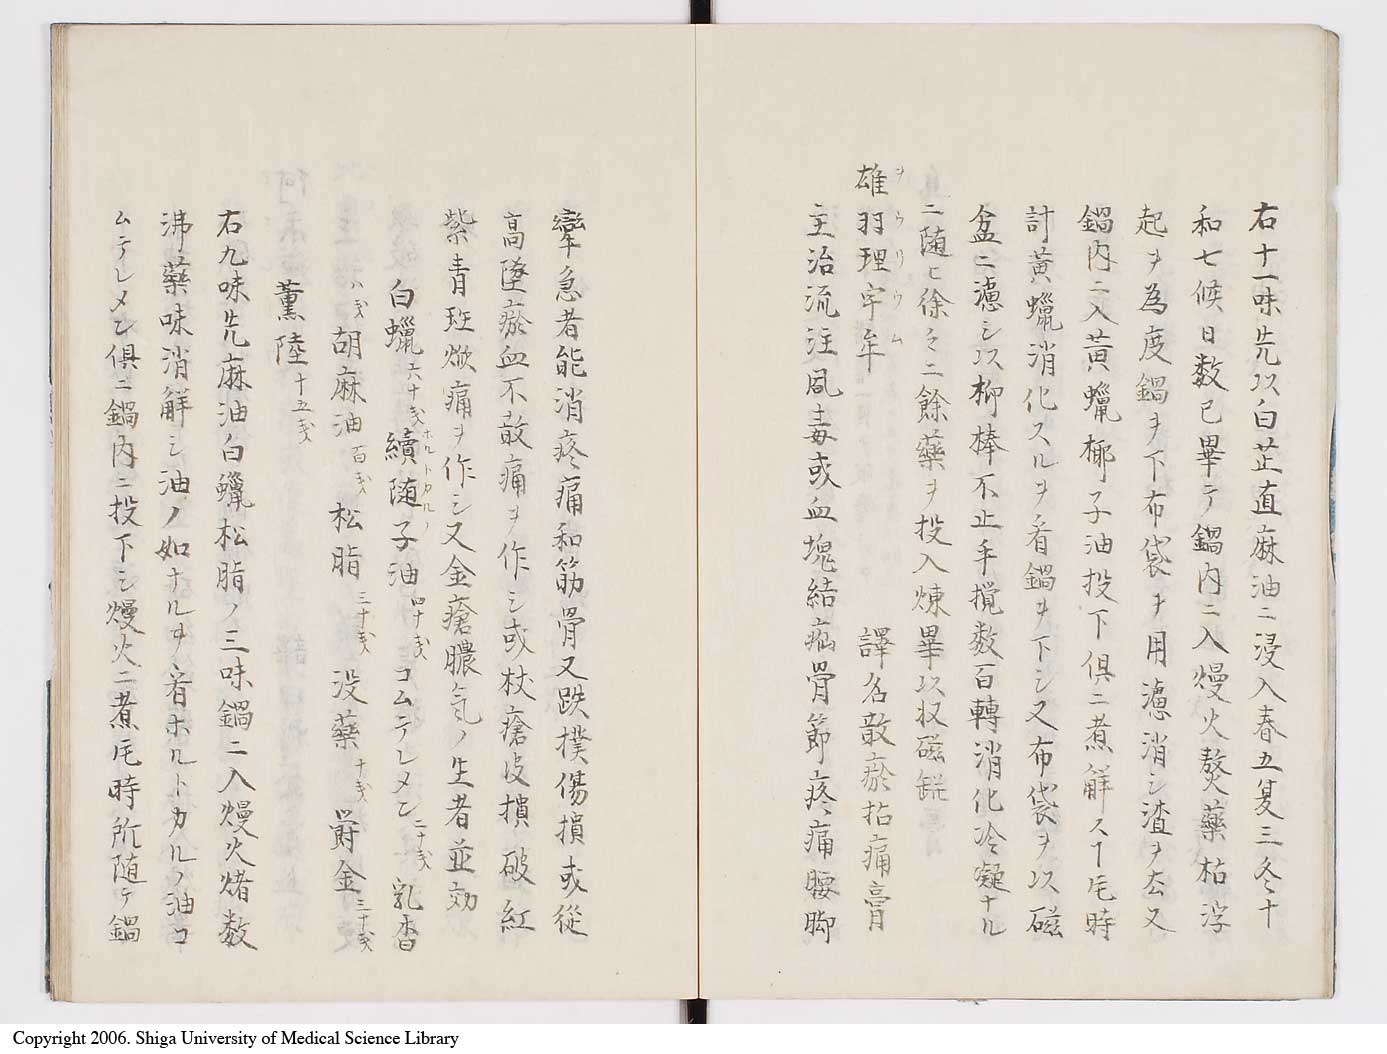 右十一味先以白芷直麻油ニ浸入春五夏三冬十
和七候日数已畢テ鍋内ニ入熳火熬藥枯浮
起ヲ為度鍋ヲ下布袋ヲ用濾消シ渣ヲ去又
鍋内ニ入黄蠟椰子油投下俱ニ煮解スヿ乇時
計黄蠟消化スルヲ看鍋ヲ下シ又布袋ヲ以磁
盆ニ濾シ以柳棒不止手攪数百轉消化冷凝ナル
ニ随ヒ徐々ニ餘藥ヲ投入煉畢以収磁
雄羽理宇牟 譯名散瘀拈痛膏
ヲウリウム
主治流注風毒或血塊結痂骨節疼痛腰脚
攣急者能消疼痛和筋骨又跌撲傷損或従
高墜瘀血不散痛ヲ作シ或杖瘡皮損破紅
紫青斑焮痛ヲ作シ又金瘡膿気ノ生者並効
白蠟六十戔 續随子油四十戔 コムテレメン二十戔 乳香
ホルトカルノ
八戔 胡麻油百戔 松脂三十戔 没藥十戔 欝金三十戔
薫陸十五戔
右九味先麻油白蠟松脂ノ三味鍋ニ入熳火煮数
沸藥味消解シ油ノ如ナルヲ看ホルトカルノ油コ
ムテレメン俱ニ鍋内ニ投下シ熳火ニ煮乇時所随テ鍋
Copyright 2006. Shiga University of Medical Science Library